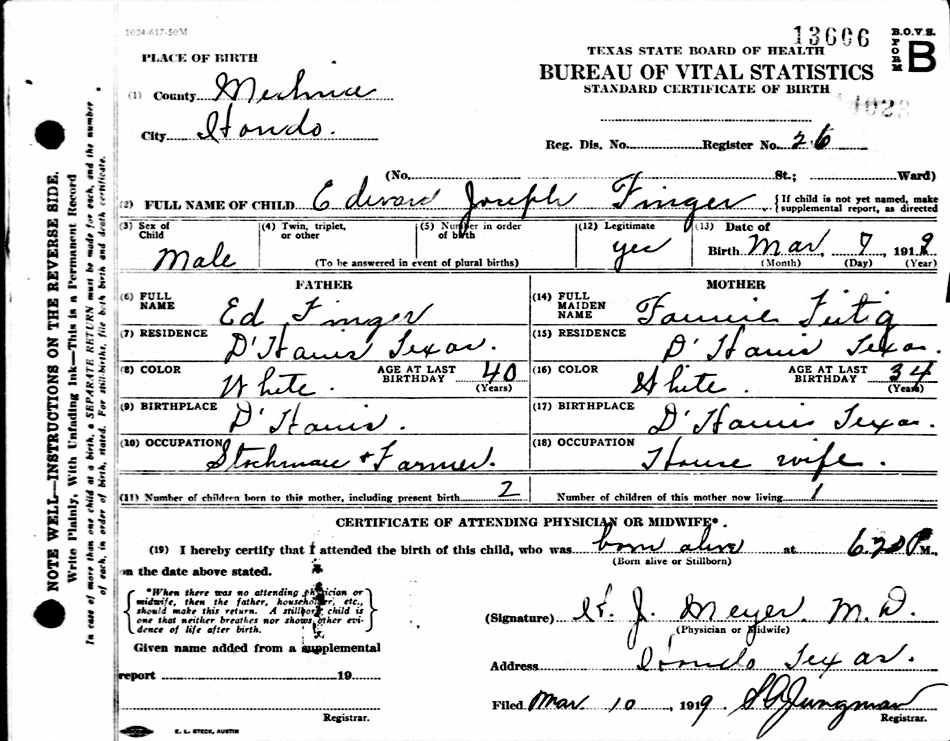 1024-617-50M
13606
B.O.V.S.
FORM B
TEXAS STATE BOARD OF HEALTH
BUREAU OF VITAL STATISTICS
STANDARD CERTIFICATE OF BIRTH
PLACE OF BIRTH
(1) County Medina
City Hondo.
Reg. Dis. No. Register No. 26
(No. St.; Ward)
(2) FULL NAME OF CHILD Edward Joseph Finger {If child is not yet named, make supplemental report, as directed
(3) Sex of Child Male
(4) Twin, triplet, or other
(5) Number in order of birth
(To be answered in event of plural births)
(12) Legitimate yes
(13) Date of Birth Mar 7 1919
(Month) (Day) (Year)
FATHER
(6) FULL NAME Ed Finger
(7) RESIDENCE D'Hanis Texas.
(8) COLOR White AGE AT LAST BIRTHDAY 40 (Years)
(9) BIRTHPLACE D'Hanis.
(10) OCCUPATION Stockman + Farmer.
MOTHER
(14) FULL MAIDEN NAME Fannie
(15) RESIDENCE D'Hanis Texas.
(16) COLOR White. AGE AT LAST BIRTHDAY 34 (Years)
(17) BIRTHPLACE D'Hanis Texas.
(18) OCCUPATION House wife.
(11) Number of children born to this mother, including present birth 2
Number of children of this mother now living 1
CERTIFICATE OF ATTENDING PHYSICIAN OR MIDWIFE*.
(19) I hereby certify that I attended the birth of this child, who was born alive at P M.,
(Born alive or Stillborn)
on the date above stated.
{*When there was no attending physician or
midwife, then the father, householder, etc.,
should make this return. A stillborn child is
one that neither breathes nor shows other evi-
dence of life after birth.}
Given name added from a supplemental
report 19
Registrar.
(Signature) J. Meyer, M.D.
(Physician or Midwife)
Address Hondo Texas.
Filed Mar 10, 1919 Jungman
Registrar.
E. L. STECK, AUSTIN
NOTE WELL—INSTRUCTIONS ON THE REVERSE SIDE.
Write Plainly, With Unfading Ink—This is a Permanent Record
In case of more than one child at a birth, a SEPARATE RETURN must be made for each, and the number
of each, in order of birth, stated. For still-births, file both birth and death certificate.